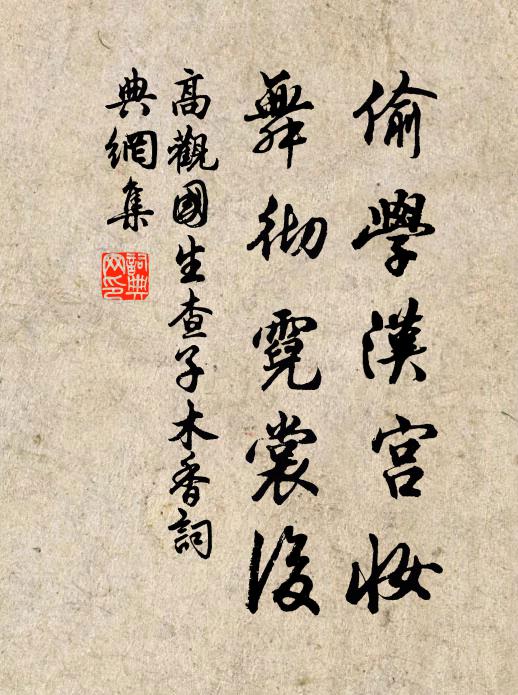 偷學漢宮妝
舞彻霓裳後
高觀國生查子木香詞
典網集
詞典網印